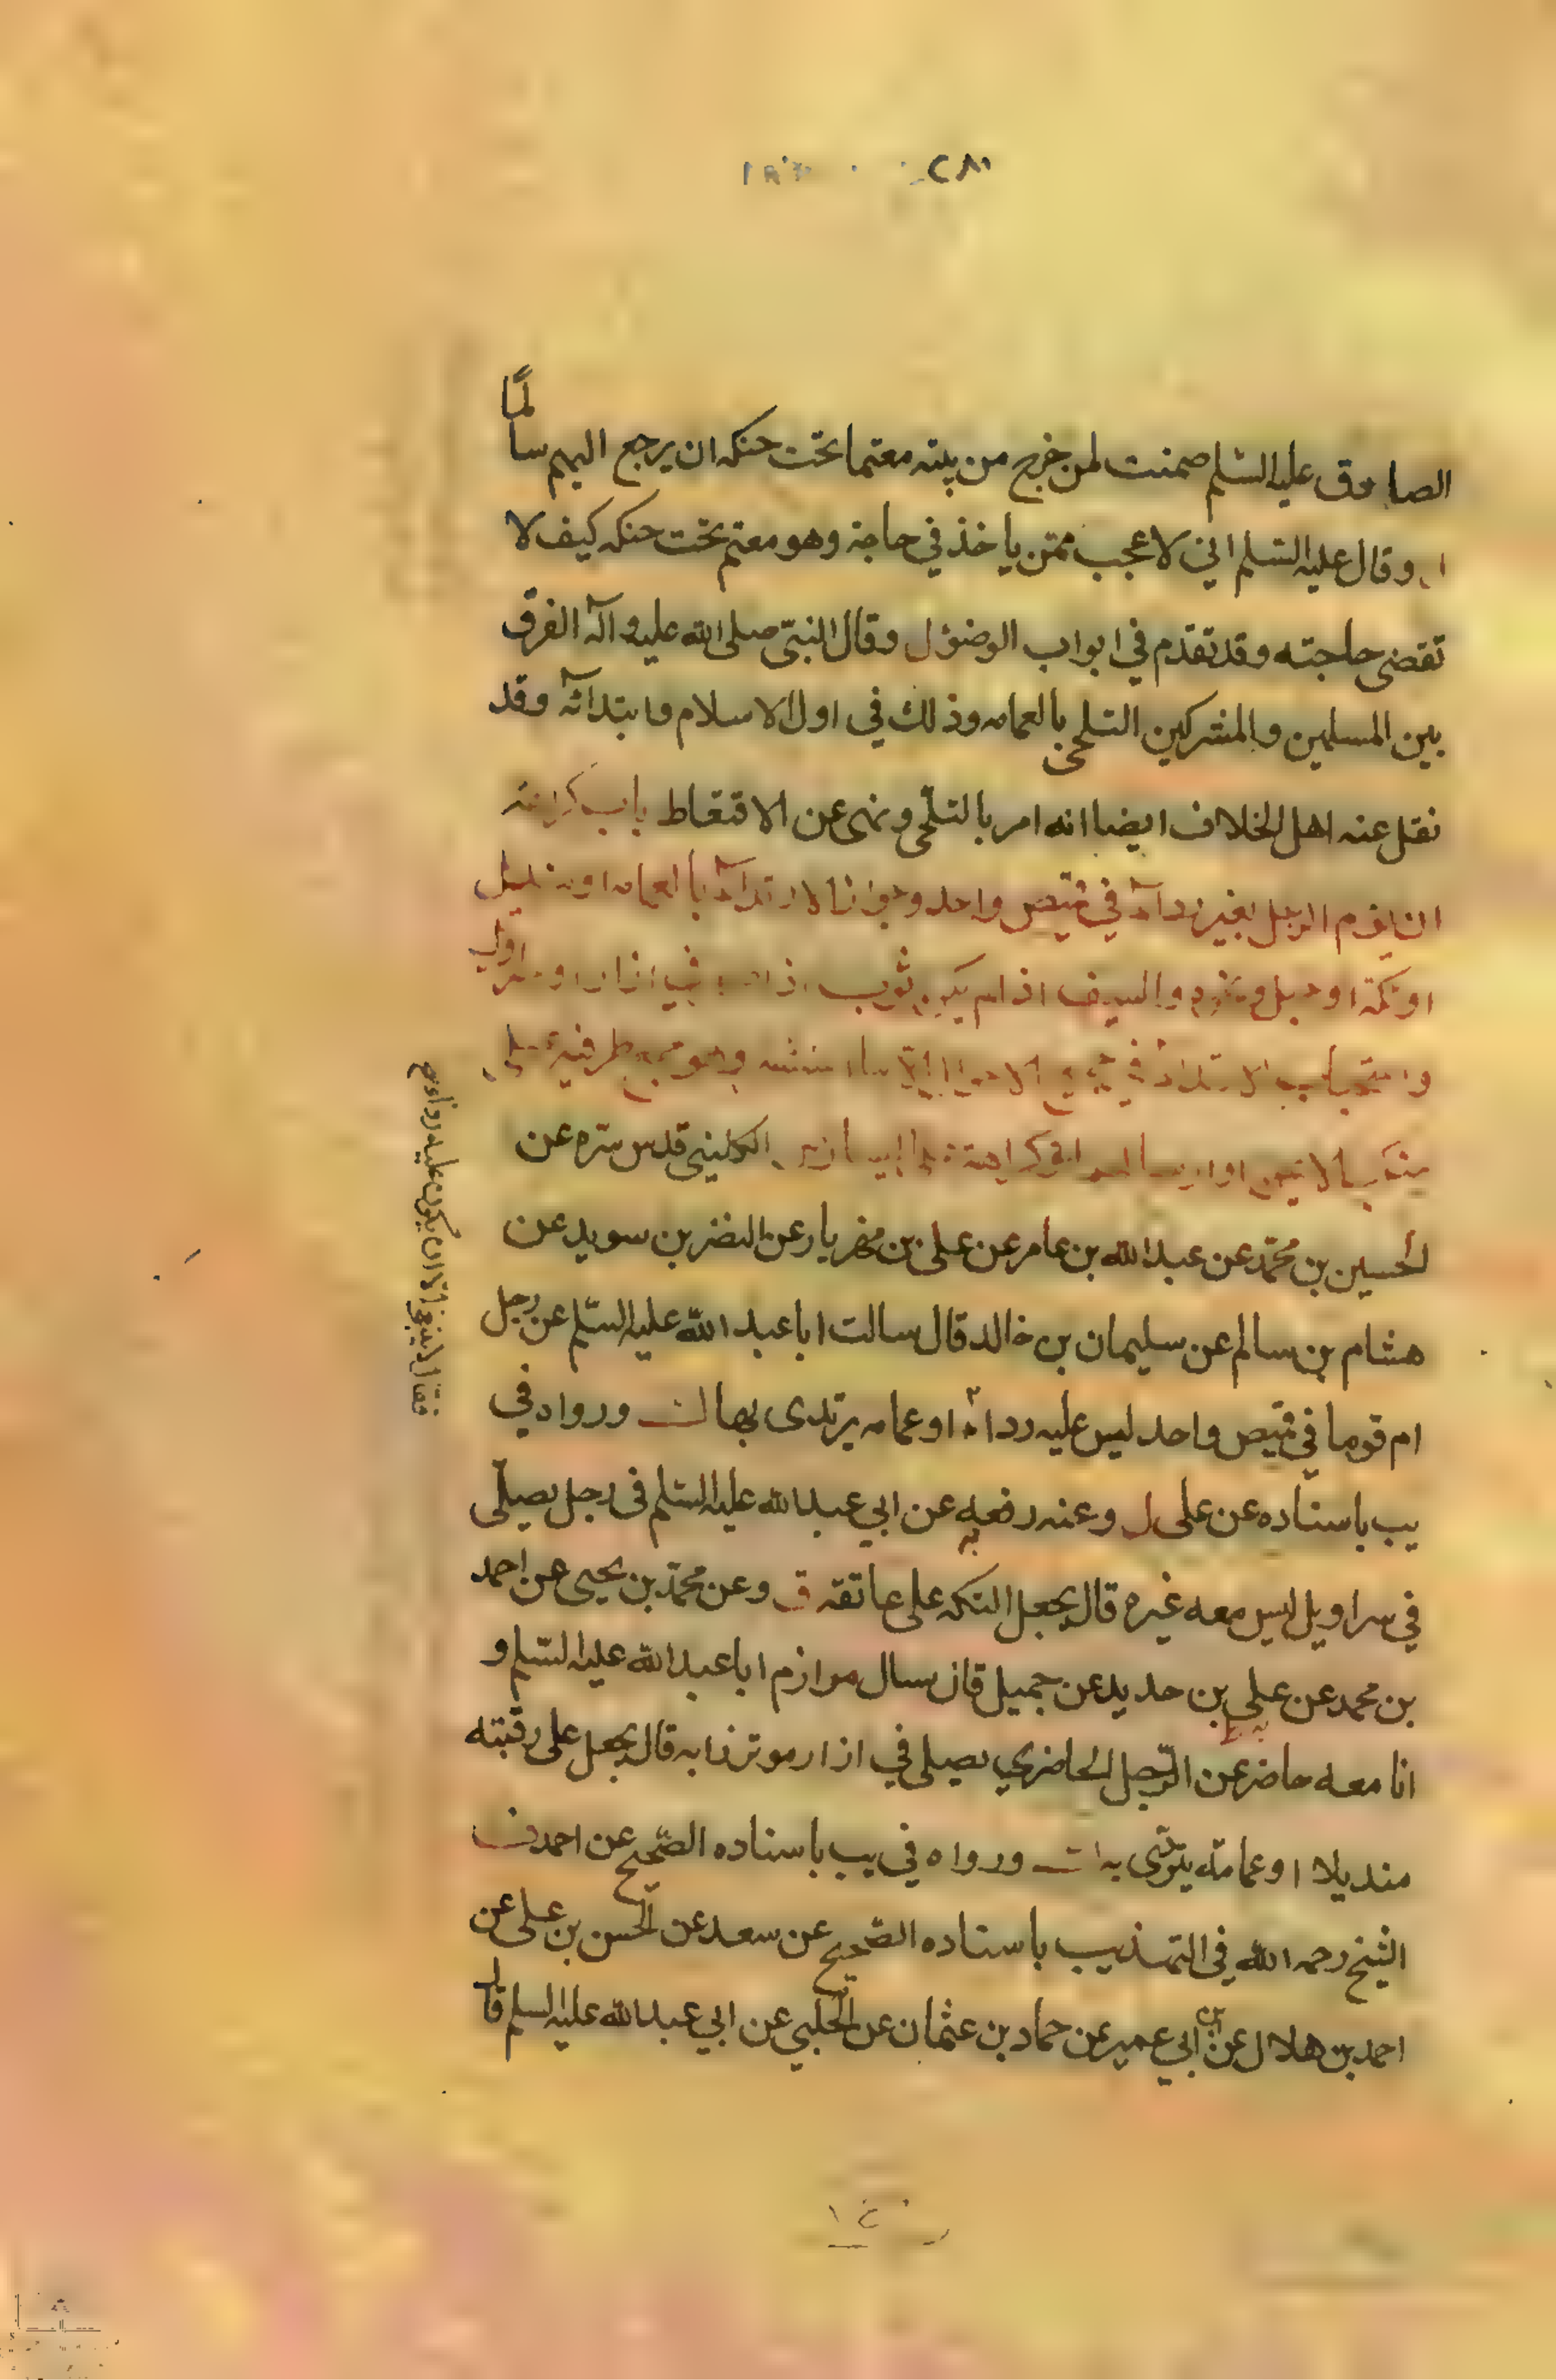 ٢٨١
الصادق عليه السلم ضمنت لمن خرج من بيته معتما تحت حنكه ان يرجع اليهم سالمًا
وقال عليه السلم اني لاعجب ممّن ياخذ في حاجة وهو معتم تحت حنكه كيف لا
تقضى حاجته وقد تقدم في ابواب الوضوء ل وقال النبيّ صلى الله عليه وآله الفرق
بين المسلمين والمشركين التلحى بالعمامه وذلك في اول الاسلام وابتدائه وقد
نقل عنه اهل الخلاف ايضا انه امر بالتلحّى ونهى عن الاقتعاط باب كراهة
ان يؤم الرجل بغير رداء في قميص واحد وجواز الارتداء بالعمامه او منديل
او تكة او حبل والسيف اذا لم يكن ثوب اذا في ازار او سراويل
واستحباب الارتداء في جميع طرفيه على
منكب الايمن او ارسالهما وكراهة الكليني قدس سره عن
الحسين بن محمّد عن عبد الله بن عامر عن على بن مهزيار عن النضر بن سويد عن
هشام بن سالم عن سليمان بن خالد قال سالت ابا عبد الله عليه السّلم عن رجل
ام قوما في قميص واحد ليس عليه رداء او عمامه يرتدى بها ورواه في
يب باسناده عن على ل وعنه رفعه عن ابي عبد الله عليه السّلم في رجل يصلّى
في سراويل ليس معه غيره قال يجعل التكه على عاتقه ق وعن محمّد بن يحيى عن احمد
بن محمد عن على بن حديد عن جميل قال سال مرازم ابا عبد الله عليه السّلم و
انا معه حاضر عن الرّجل الحاضر يصلى في ازار موتزرا به قال يجعل على رقبته
منديلا او عمامة يتردّى به ورواه في يب باسناده الصّحيح عن احمد ف
الشيخ رحمه الله في التهذيب باسناده الصّحيح عن سعد عن الحسن بن على عن
احمد بن هلال عن ابن ابي عمير عن حماد بن عثمان عن الحلبي عن ابي عبد الله عليه السلم قال
فقال لا ينبغي الا ان يكون عليه رداء